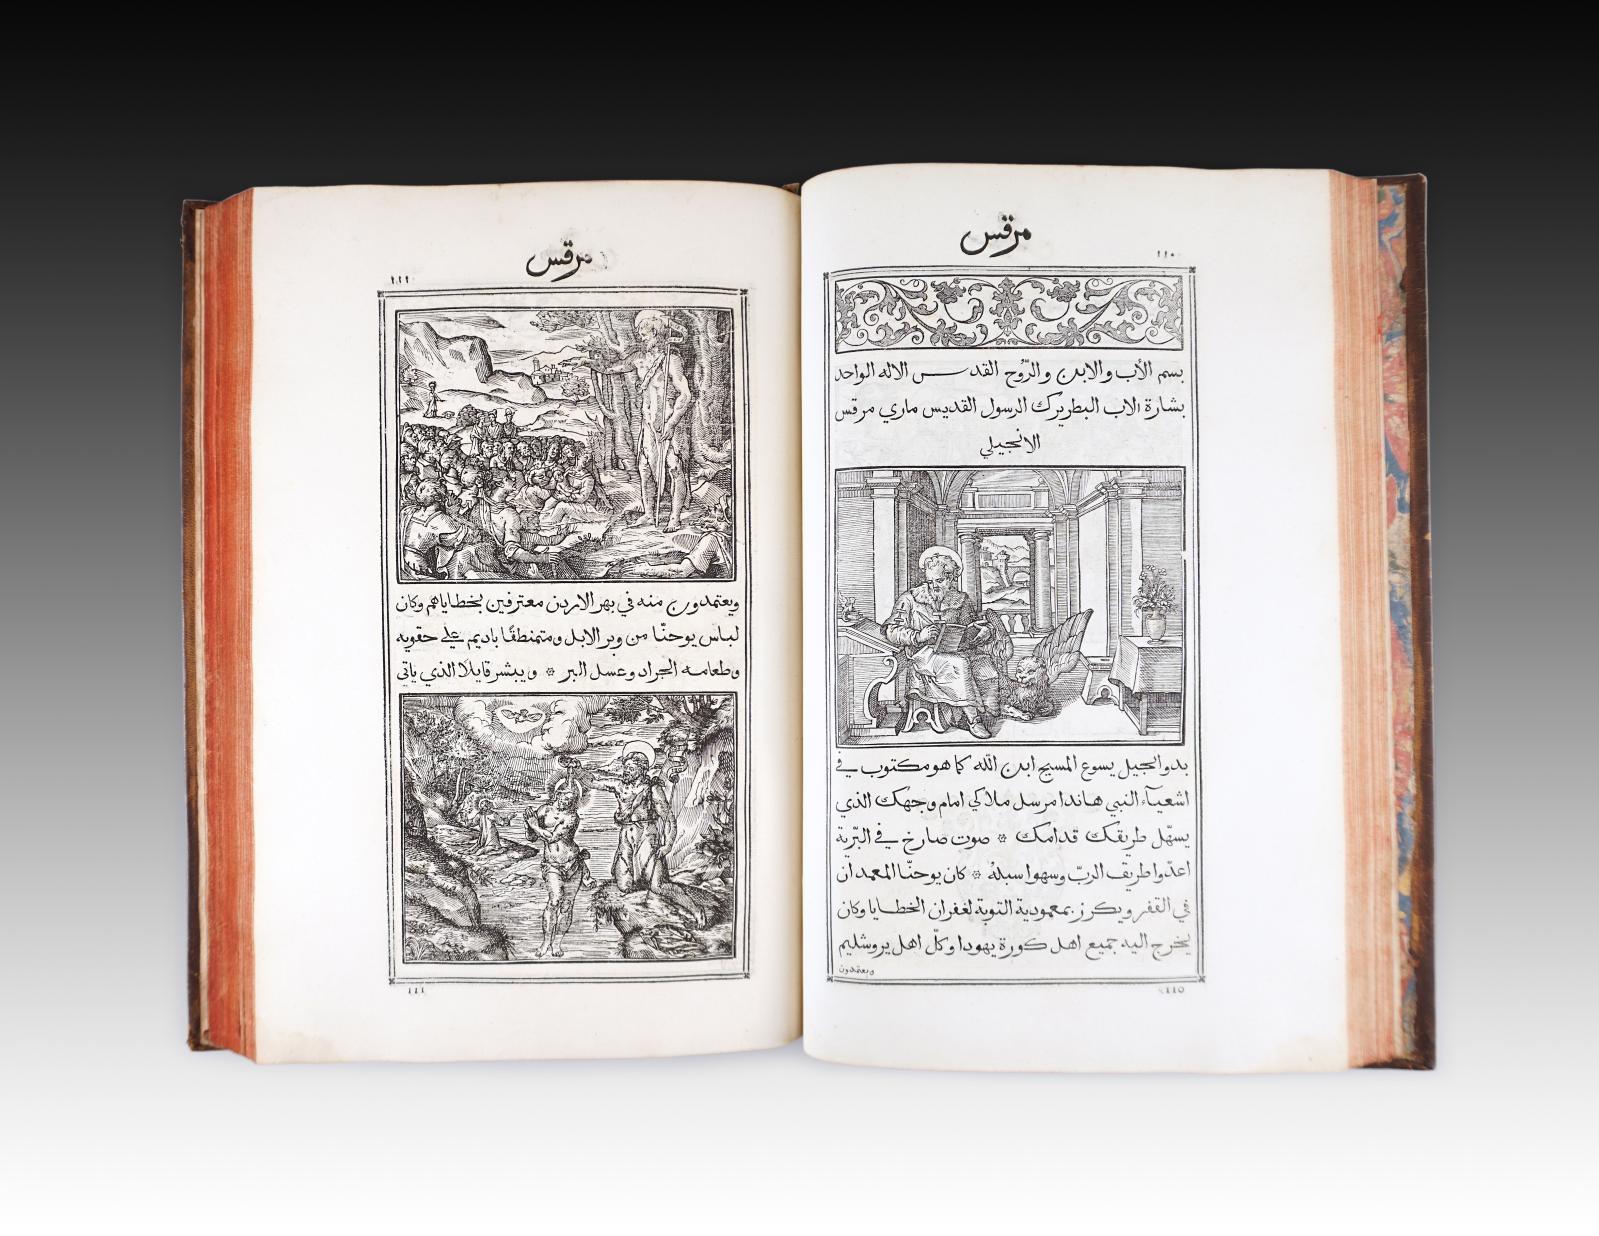 مرقس
١١٠
بسم الأب والابن والرّوح القدس الاله الواحد
بشارة الاب البطريرك الرسول القديس ماري مرقس
الانجيلي
بدو انجيل يسوع المسيح ابن اللّه كما هو مكتوب في
اشعيآء النبي هاندا مرسل ملاكي امام وجهك الذي
يسهّل طريقك قدامك * صوت صارخ في البرّية
اعدّوا طريق الربّ وسهوا سبلهُ * كان يوحنّا المعمدان
في القفر ويكرز بمعمودية التوبة لغفران الخطايا وكان
يخرج اليه جميع اهل كورة يهودا وكلّ اهل يروشليم
ويعتمدون
110
مرقس
١١١
ويعتمدون منه في نهر الاردن معترفين بخطاياهم وكان
لباس يوحنّا من وبر الابل ومتمنطقًا باديم على حقويه
وطعامه الجراد وعسل البر * ويبشر قايلا الذي ياتي
111